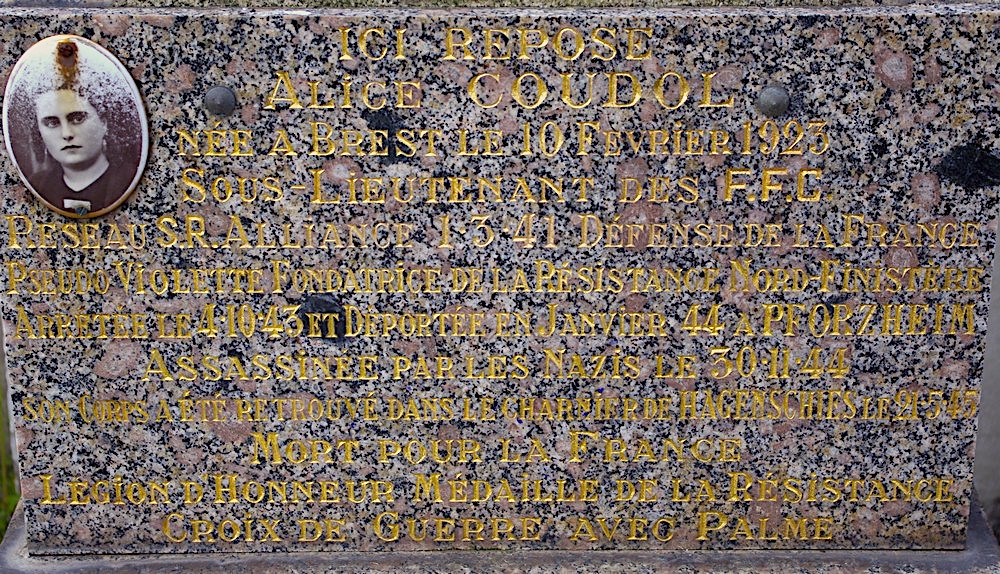 ICI REPOSE
ALICE COUDOL
NÉE A BREST LE 10 FEVRIER 1923
SOUS-LIEUTENANT DES F.F.C.
RESEAU S.R. ALLIANCE 1-3-41 DÉFENSE DE LA FRANCE
PSEUDO VIOLETTE FONDATRICE DE LA RÉSISTANCE NORD-FINISTÈRE
ARRÊTÉE LE 4-10-43 ET DÉPORTÉE EN JANVIER 44 A PFORZHEIM
ASSASSINÉE PAR LES NAZIS LE 30-11-44
SON CORPS A ÉTÉ RETROUVÉ DANS LE CHARNIER DE HAGENSCHIES LE 21-5-45
MORT POUR LA FRANCE
LEGION D'HONNEUR MÉDAILLE DE LA RÉSISTANCE
CROIX DE GUERRE AVEC PALME